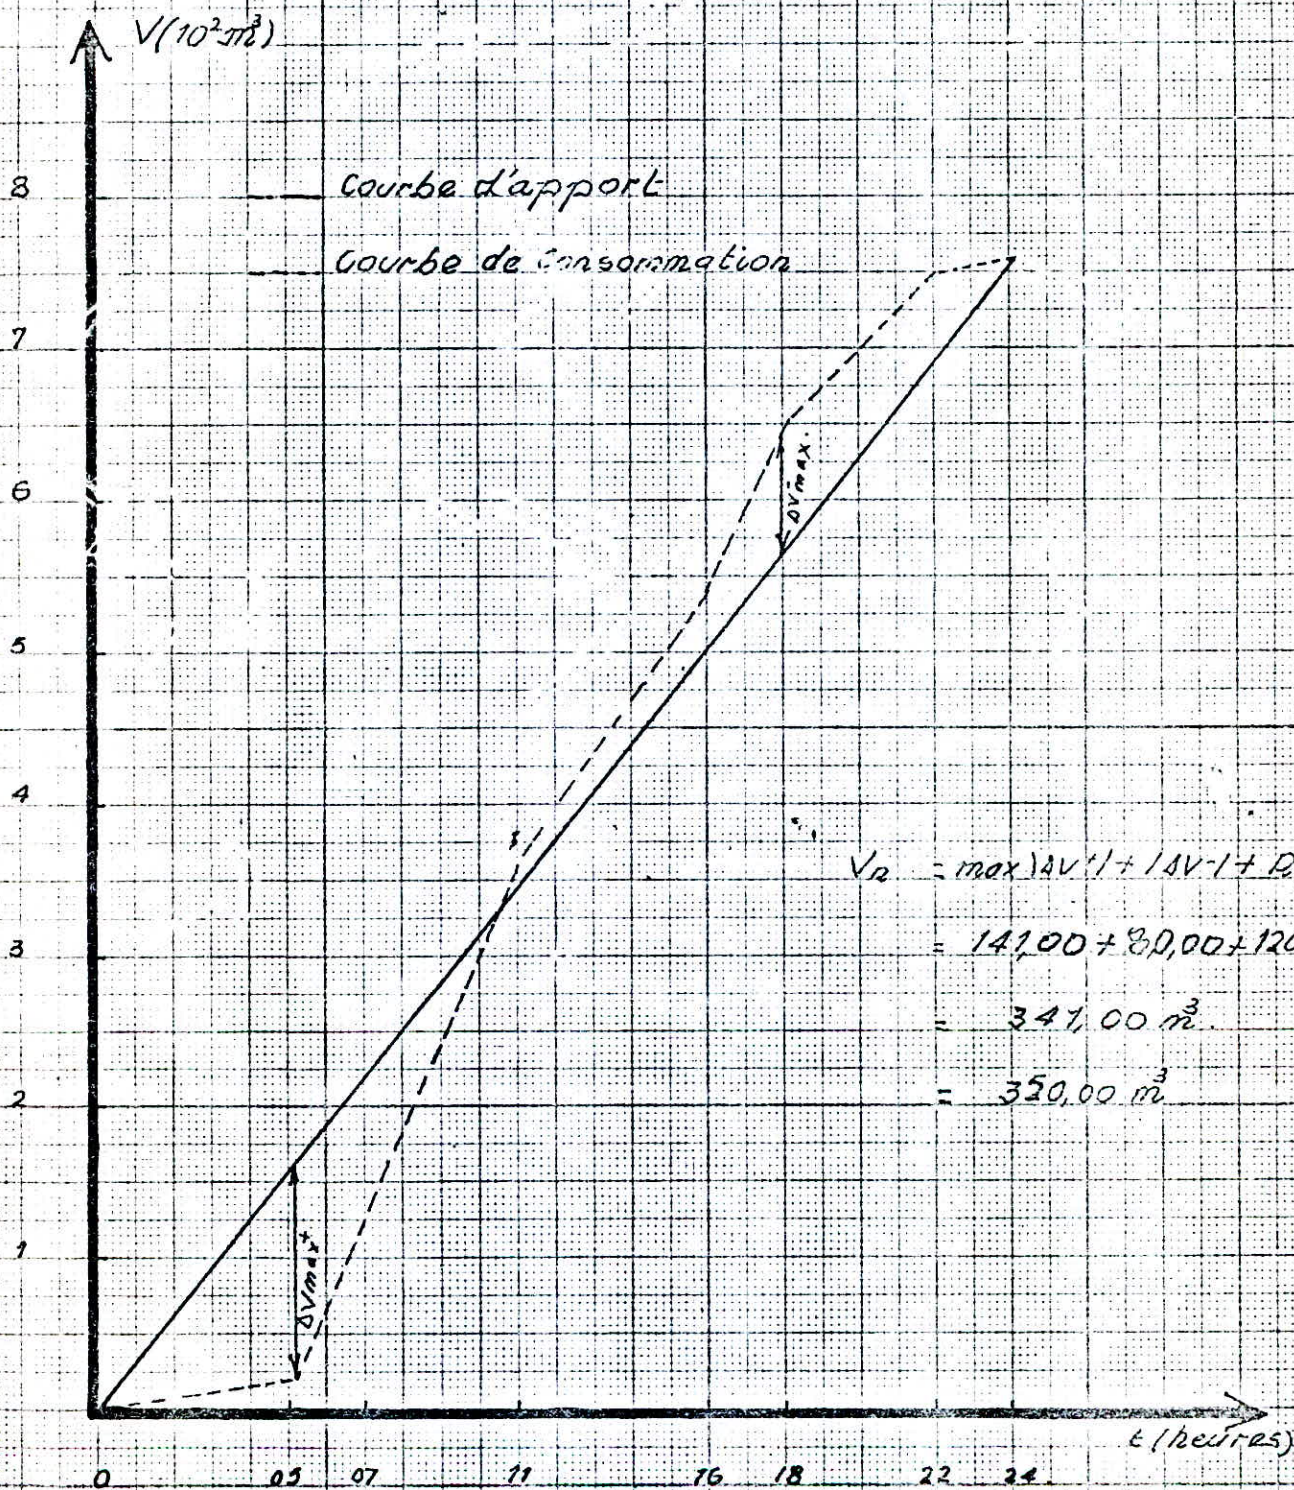 V(10² m³)
8
Courbe d'apport
Courbe de Consommation
7
6
ΔV⁻max.
5
4
V_R = max |ΔV⁺| + |ΔV⁻| + R
3
= 141,00 + 80,00 + 120
= 341,00 m³.
2
= 350,00 m³
1
ΔVmax⁺
t (heures)
0 05 07 11 16 18 22 24